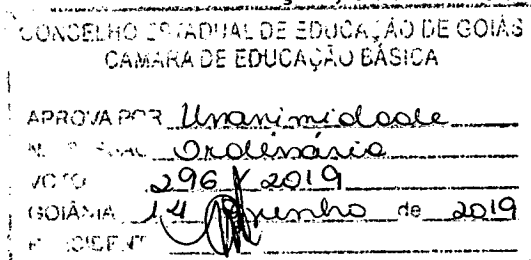 CONSELHO ESTADUAL DE EDUCAÇÃO DE GOIÁS
CAMARA DE EDUCAÇÃO BÁSICA
APROVA POR Unanimidade
Ordinária
VOTO 296 / 2019
GOIÂNIA 14 junho de 2019